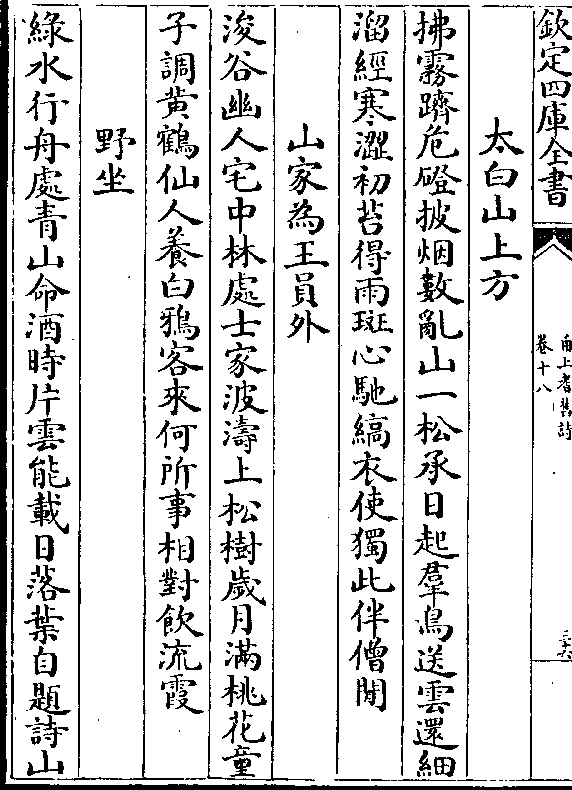 欽定四庫全書
甬上耆舊詩
卷十八
三十六
太白山上方
拂霧躋危磴披烟數亂山一松承日起羣鳥送雲還細
溜經寒澀初苔得雨斑心馳縞衣使獨此伴僧閒
山家為王員外
浚谷幽人宅中林處士家波濤上松樹歲月滿桃花童
子調黄鶴仙人養白鴉客來何所事相對飲流霞
野坐
綠水行舟處青山命酒時片雲能載日落葉自題詩山